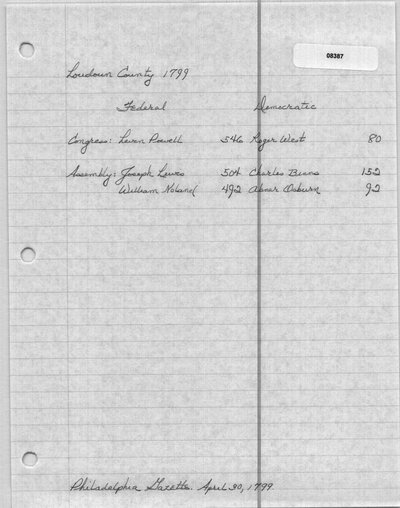 08387
Loudoun County 1799
Federal Democratic
Congress: Leven Powell 546 Roger West 80
Assembly: Joseph Lewis 504 Charles Binns 152
William Noland 492 Abner Osburn 92
Philadelphia Gazette. April 30, 1799.